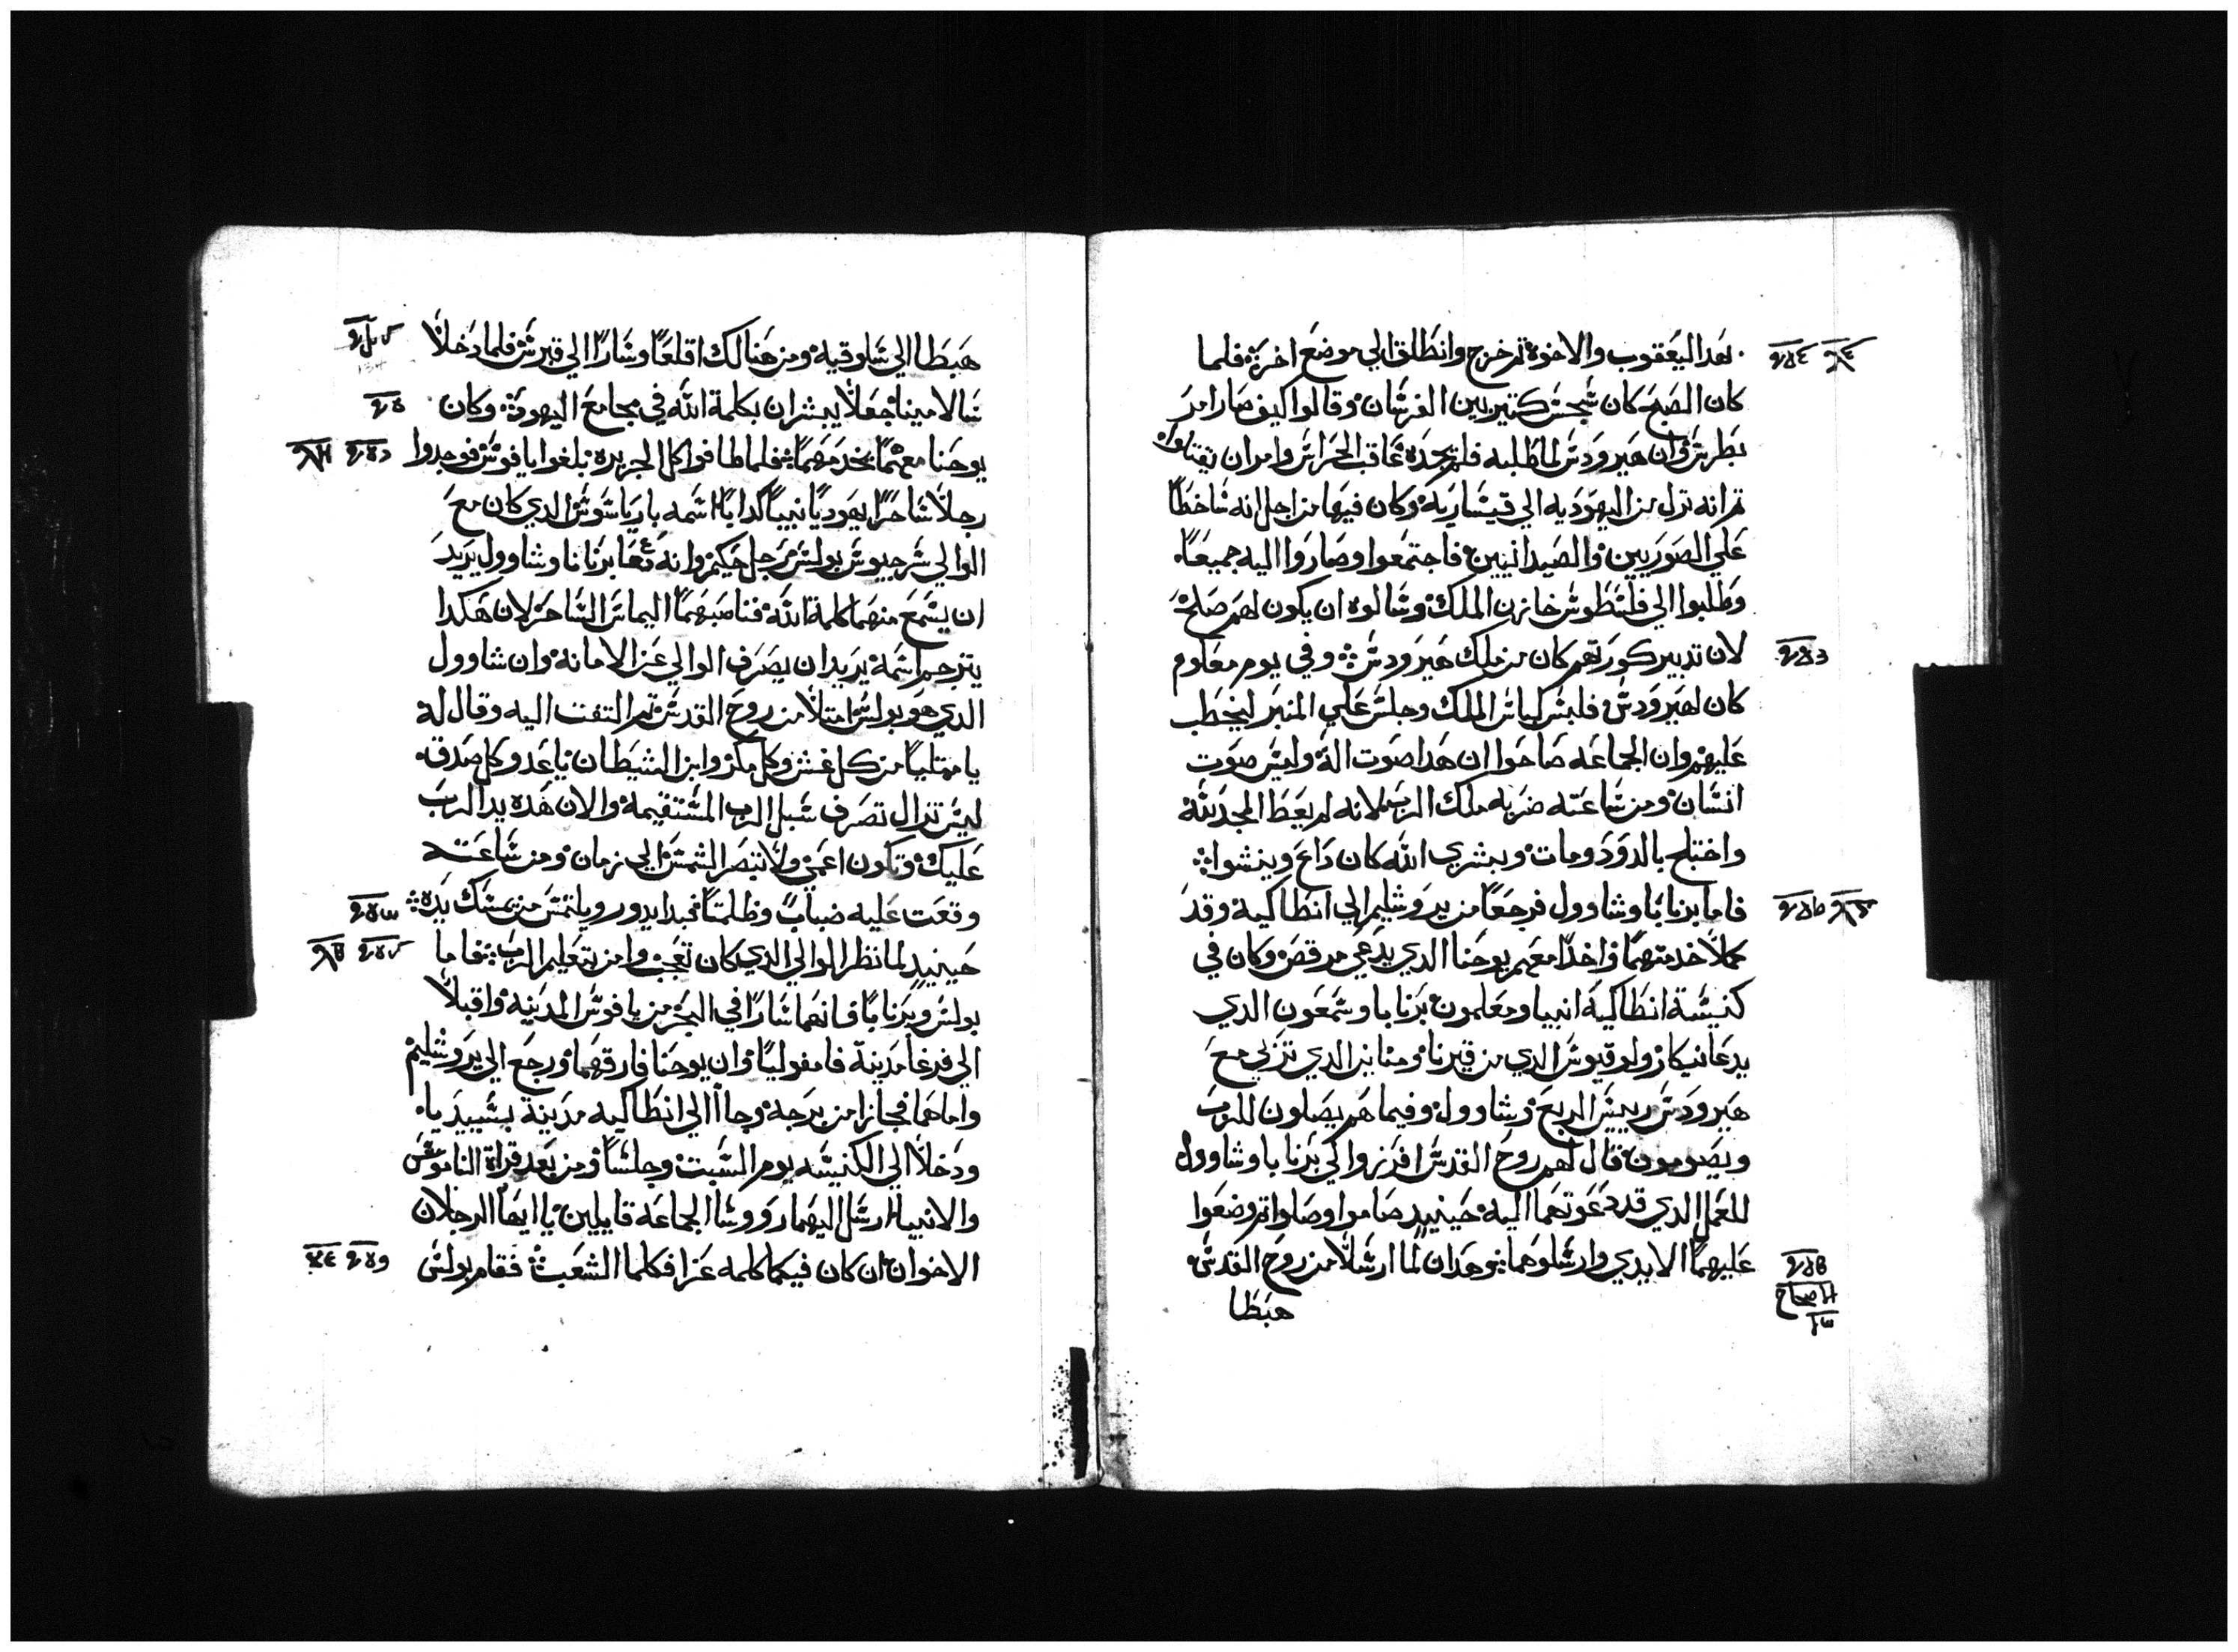 بهدا ليعقوب والاخوة ثم خرج وانطلق الي موضع اخر فلما
كان الصبح كان شجس كتير بين الفرسان وقالوا كيف صار امر
بطرس وان هيرودس لما طلبه فلم يجده عاقب الحراس وامر ان يقتلوا
ثم انه نزل من اليهوديه الي قيساريه وكان فيها من اجل انه ساخطا
علي الصوريين والصيدانيين فاجتمعوا وصاروا اليه جميعا
وطلبوا الي فلسطوس خازن الملك وسالوه ان يكون لهم صلح
لان تدبير كورتهم كان من ملك هيرودس وفي يوم معلوم
كان لهيرودس فلبس لباس الملك وجلس علي المنبر ليخطب
عليهم وان الجماعه صاحوا ان هدا صوت اله وليس صوت
انسان ومن ساعته ضربه ملك الرب لانه لم يعط المجد لله
واختلج بالدود ومات وبشري الله كان داع وينشوا
فاما برنابا وشاوول فرجعا من يروشليم الي انطاكية وقد
كملا خدمتهما واخدا معهم يوحنا الدي يدعي مرقص وكان في
كنيسة انطاكية انبيا ومعلمون برنابا وشمعون الدي
يدعا نيكار ولوقيوس الدي من قيرنا ومناين الدي تربي مع
هيرودس رييس الربع وشاوول وفيما هم يصلون للرب
ويصومون قال لهم روح القدس افرزوا لي برنابا وشاوول
للعمل الدي قد دعوتهما اليه حينيد صاموا وصلوا ثم وضعوا
عليهما الايدي وارسلوهما فهدان لما ارسلا من روح القدس
الاصحاح
١٣
هبطا
هبطا الي سلوقيه ومن هنالك اقلعا وسارا الي قبرس فلما دخلا
سالامينا جعلا يبشران بكلمة الله في مجامع اليهود وكان
يوحنا معهما يخدمهما فلما طافوا كل الجزيره بلغوا بافوس فوجدوا
رجلا ساحرا يهوديا نبيا كدابا اسمه باريا سوس الدي كان مع
الوالي سرجيوس بولس رجل حكيم وانه دعا برنابا وشاوول يريد
ان يسمع منهما كلمة الله فناصبهما اليماس الساحر لان هكدا
يترجم اسمه يريد ان يصرف الوالي عن الامانة وان شاوول
الدي هو بولس امتلا من روح القدس ثم التفت اليه وقال له
يا ممتليا من كل غش وكل مكر وابن الشيطان يا عدو كل صدق
ليس تزال تصرف سبل الرب المستقيمة والان هده يد الرب
عليك وتكون اعمي ولا تبصر الشمس الي زمان ومن ساعته
وقعت عليه ضباب وظلمتا فبدا يدور ويلتمس من يمسك يده
حينيد لما نظر الوالي الدي كان تعجب وامن بتعليم الرب فاما
بولس وبرنابا فانهما سارا في البحر من بافوس المدينه واقبلا
الي فرغا مدينة فامفوليا وان يوحنا فارقهما ورجع الي يروشليم
واما هما فجازا من برجه وجاا الي انطاكيه مدينة بسيديا
ودخلا الي الكنيسه يوم السبت وجلسا ومن بعد قراة الناموس
والانبيا ارسل اليهما رووسا الجماعه قايلين يا ايها الرجلان
الاخوان ان كان فيكما كلمه عزا فكلما الشعب فقام بولس